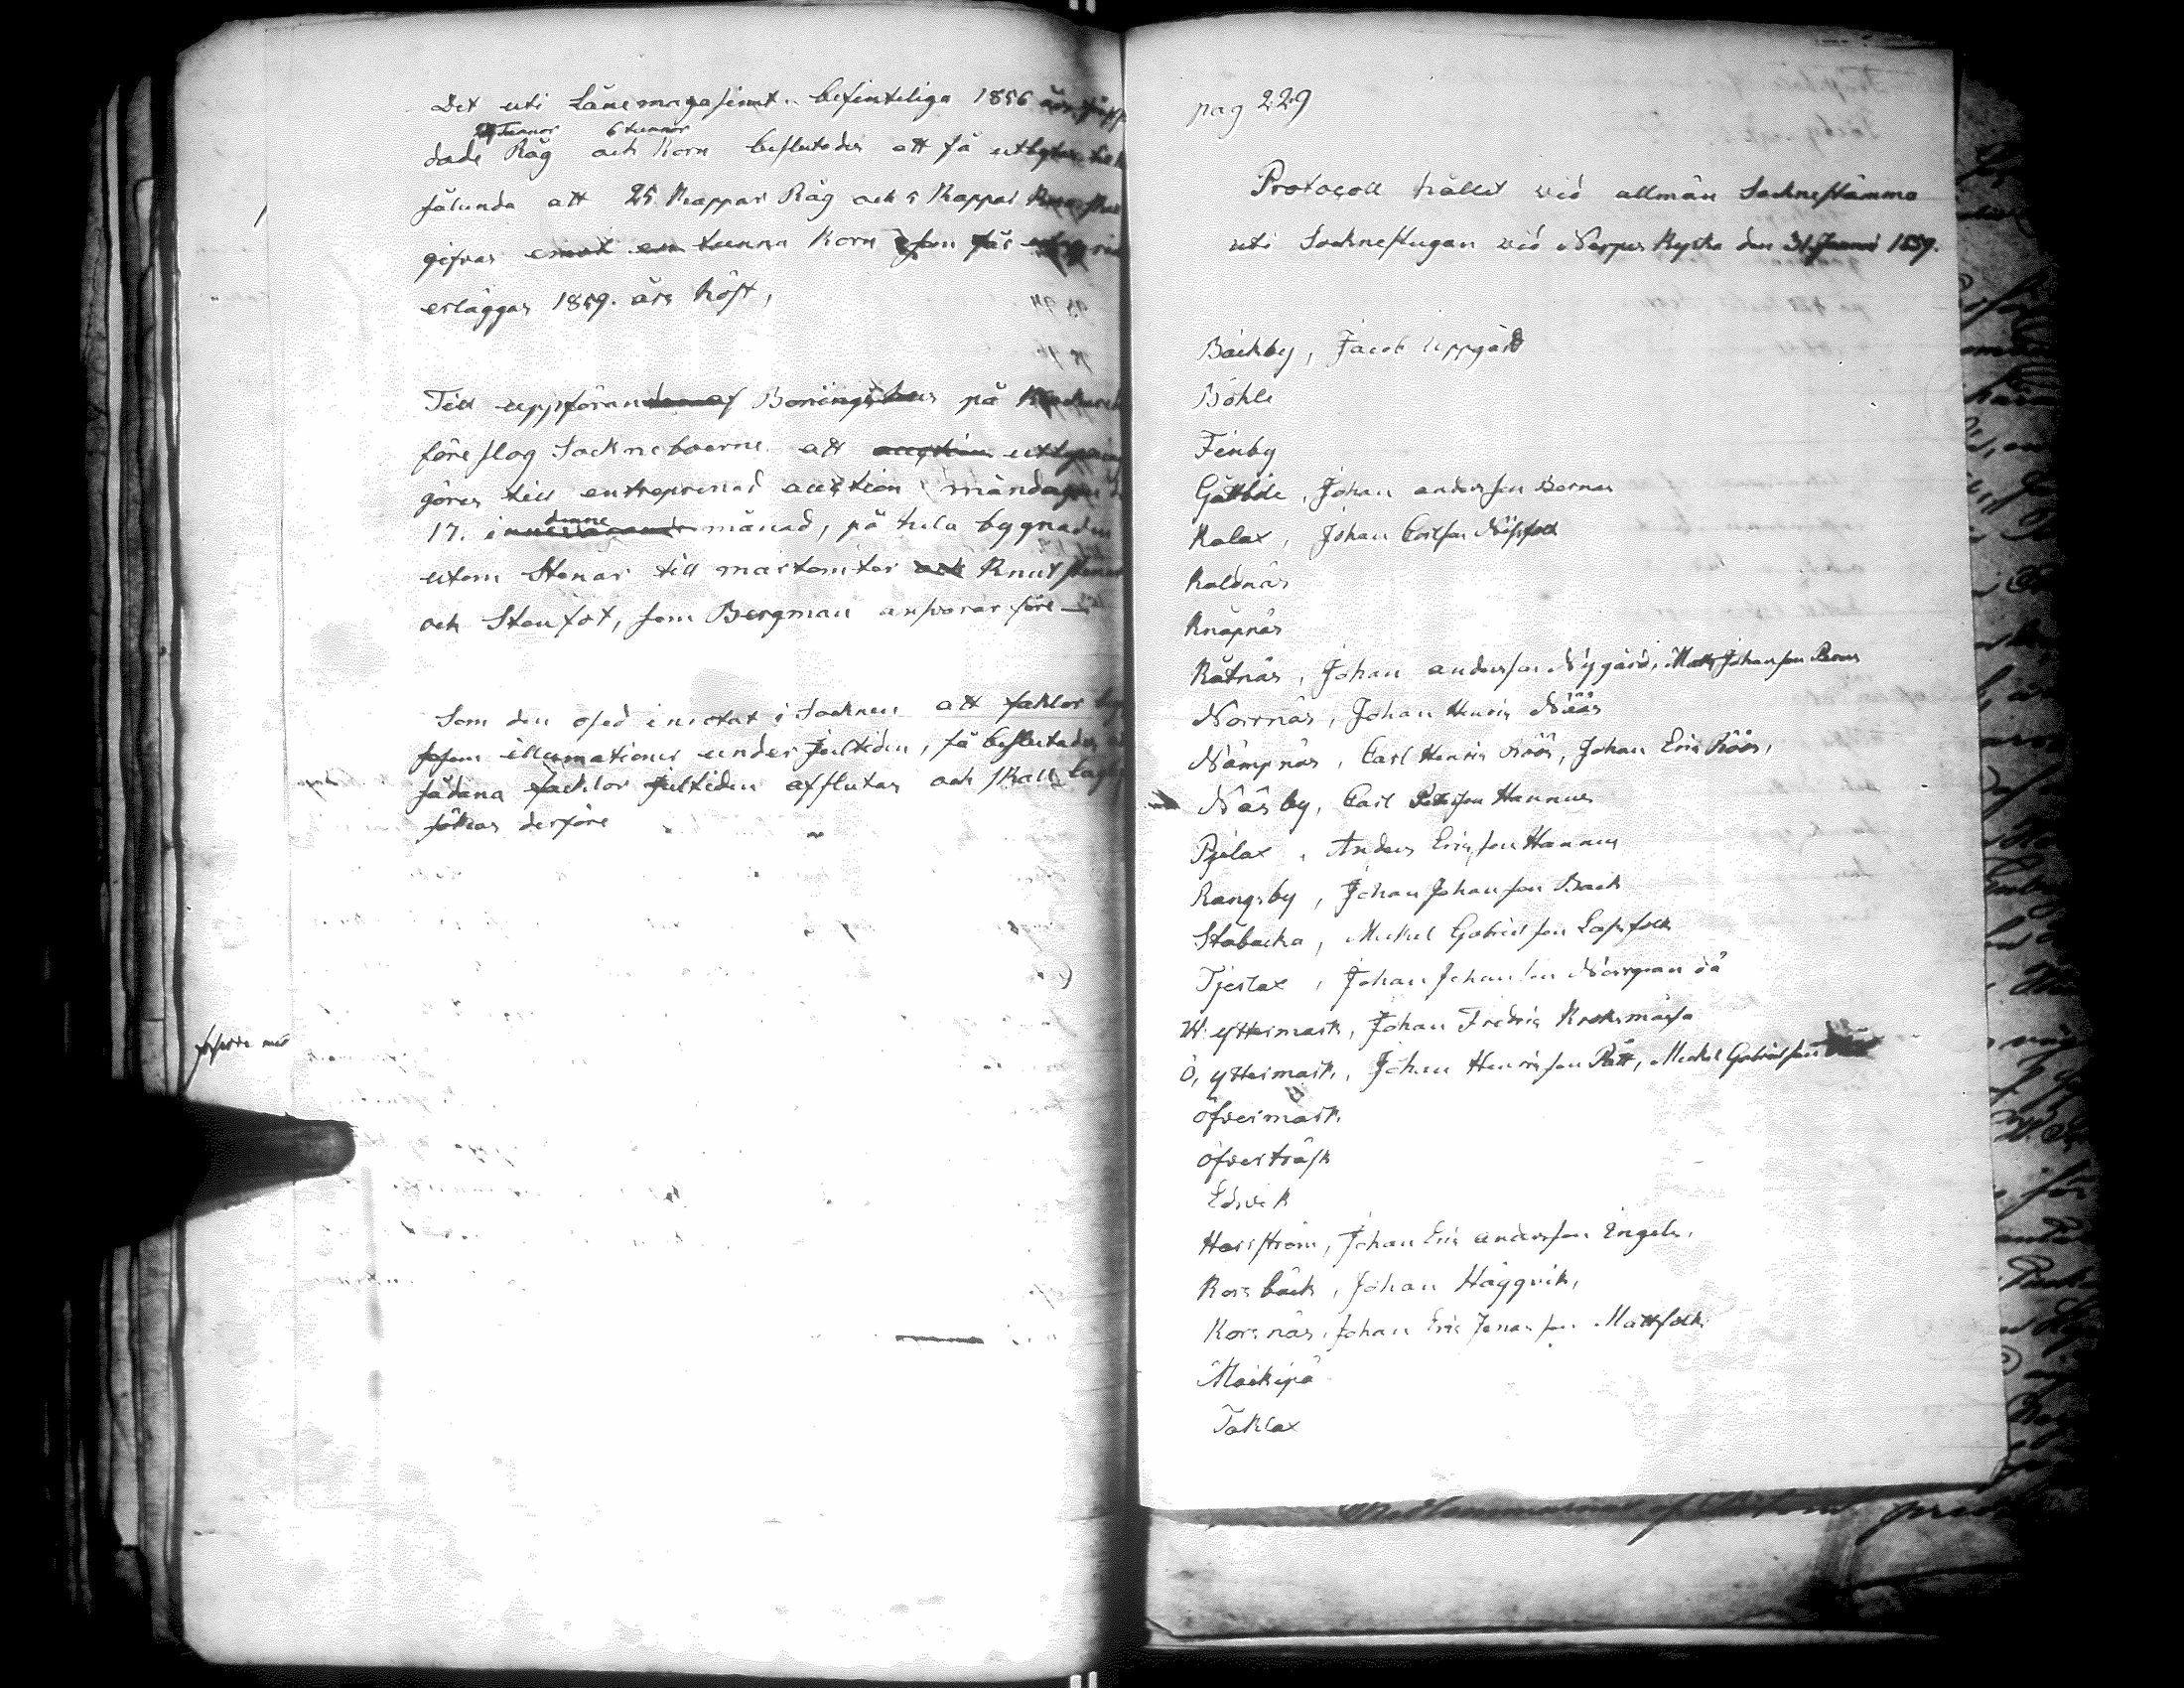 Det uti Lånemagasinet befinteliga 1856 års
24 Tunnor 6 tunnor
dade Råg och Korn beslutades att få utbytas
sålunda att 25 Kappar Råg och 5 Kappar
gifvas emot en tunna Korn som får
erläggas 1859. års höst,
Till uppförandet af Boningshus på
föreslog Sockneboerne att utlysning
göres till entreprenad auction måndagen
17. denne månad, på hela bygnaden
utom Stenar till mastomter och Knut stenar
och Stenfot, som Bergman ansvarar före
Som den osed inrotat i Socknen att facklor
såsom illumationer under Jultiden, så beslutades
sådana facklor Jultiden afslutas och skall
sökas derföre
pag 229
Protocoll hållet vid allmän Socknestämma
uti Sockenstugan vid Nerpes Kyrka den 1859.
Bäckby, Jacob Uppgård
Böhle
Finby
Gottböle, Johan andersson Bernas
Kalax, Johan Carlson Nissfolk
Kaldnäs
Knåpnäs
Råtnäs, Johan andersson Nygård, Matts Johansson
Norrnäs, Johan Henric Nääs
Nämpnäs, Carl Henric Röös, Johan Eric Röös,
Näsby, Carl Petersson Hannus
Pjelax, Anders Ericsson Hannus
Rangsby, Johan Johansson Back
Ståbacka, Mickel Gabrielsson Lassfolk
Tjerlax, Johan Johansson Norrgran då
W. yttermark, Johan Fredric Kroksmärsa
Ö, yttermark, Johan Henricsson Rått, Mickel Gabrielsson
öfvermark
öfverträsk
Edsvik
Harrström, Johan Eric andersson Engels,
Korsbäck, Johan Häggvik,
Korsnäs, Johan Eric Jonasson Mattsfolk
Märkipä
Taklax